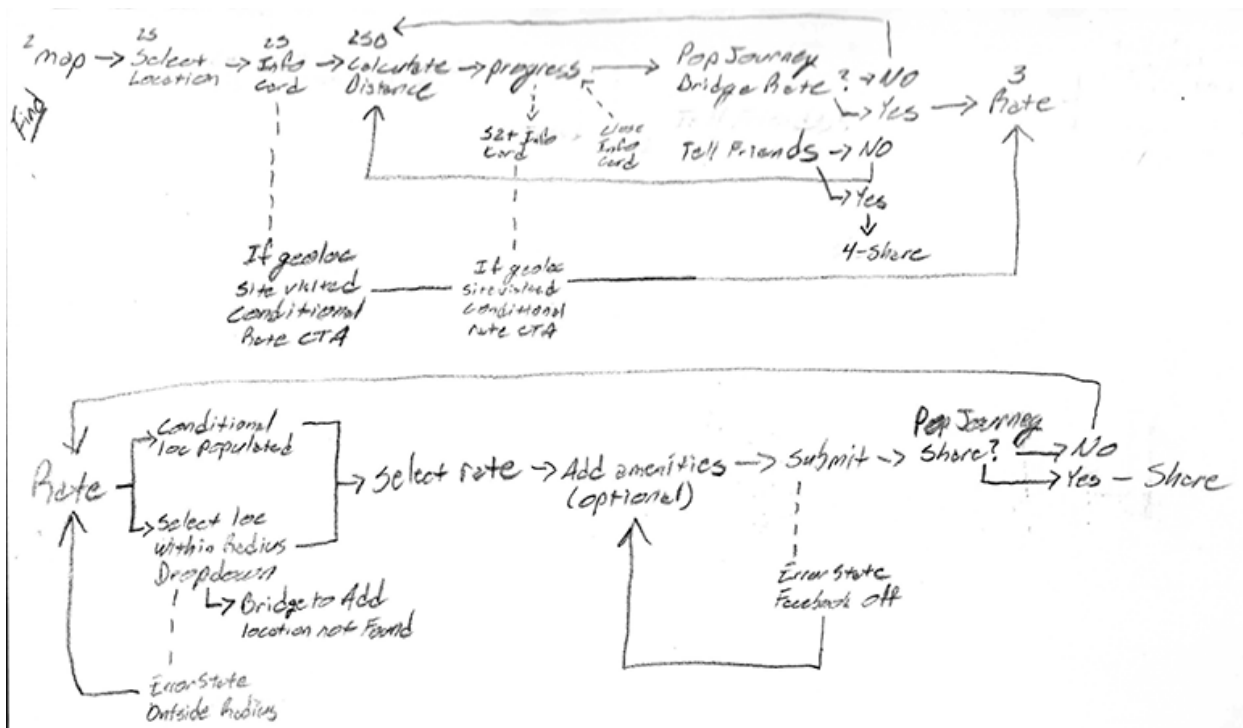 2
map
2S
Select
Location
2S
Info
Card
2SD
Calculate
Distance
progress
Pop Journey
Bridge Rate ?
NO
Yes
3
Rate
Find
S2+ Info
Card
close
Info
Card
Tell Friends
NO
Yes
4-Share
If geoloc
site visited
Conditional
Rate CTA
If geoloc
site visited
conditional
rate CTA
Rate
Conditional
loc populated
Select loc
within Radius
Dropdown
Bridge to Add
location not Found
Error State
Outside Radius
Select rate
Add amenities
(optional)
Submit
Error State
Facebook off
Pop Journey
Share?
NO
Yes - Share